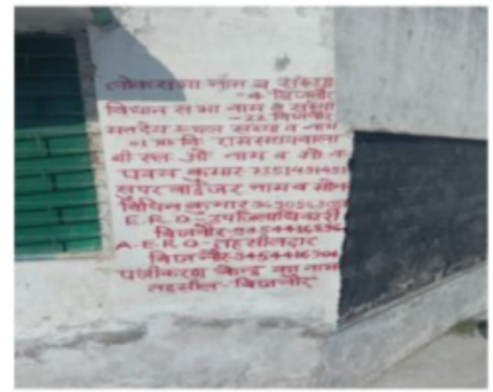 लोकसभा नाम व संख्या
-4 बिजनौर
विधान सभा नाम व संख्या
-22 बिजनौर
मतदेय स्थल संख्या व नाम
बी एल ओ नाम व मो न
पवन कुमार
सुपरवाईजर नाम व मोन
विपिन कुमार
E.R.O-उपजिलाधिकारी
बिजनौर-9454416896
A.E.R.O-तहसीलदार
बिजनौर-9454416904
पंजीकरण केन्द्र का नाम
तहसील-बिजनौर